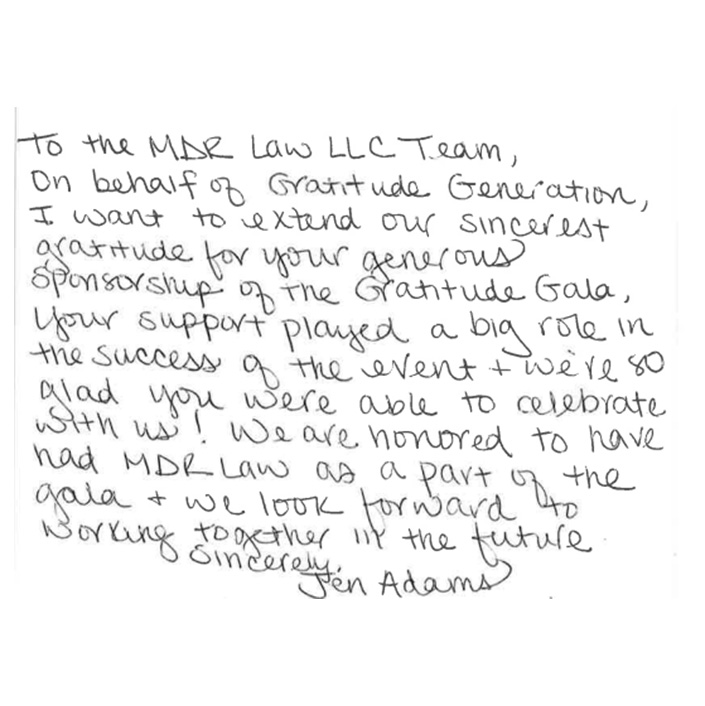 To the MDR Law LLC Team,
On behalf of Gratitude Generation,
I want to extend our sincerest
gratitude for your generous
sponsorship of the Gratitude Gala,
Your support played a big role in
the success of the event + we're so
glad you were able to celebrate
with us! We are honored to have
had MDR Law as a part of the
gala + we look forward to
working together in the future
Sincerely,
Jen Adams